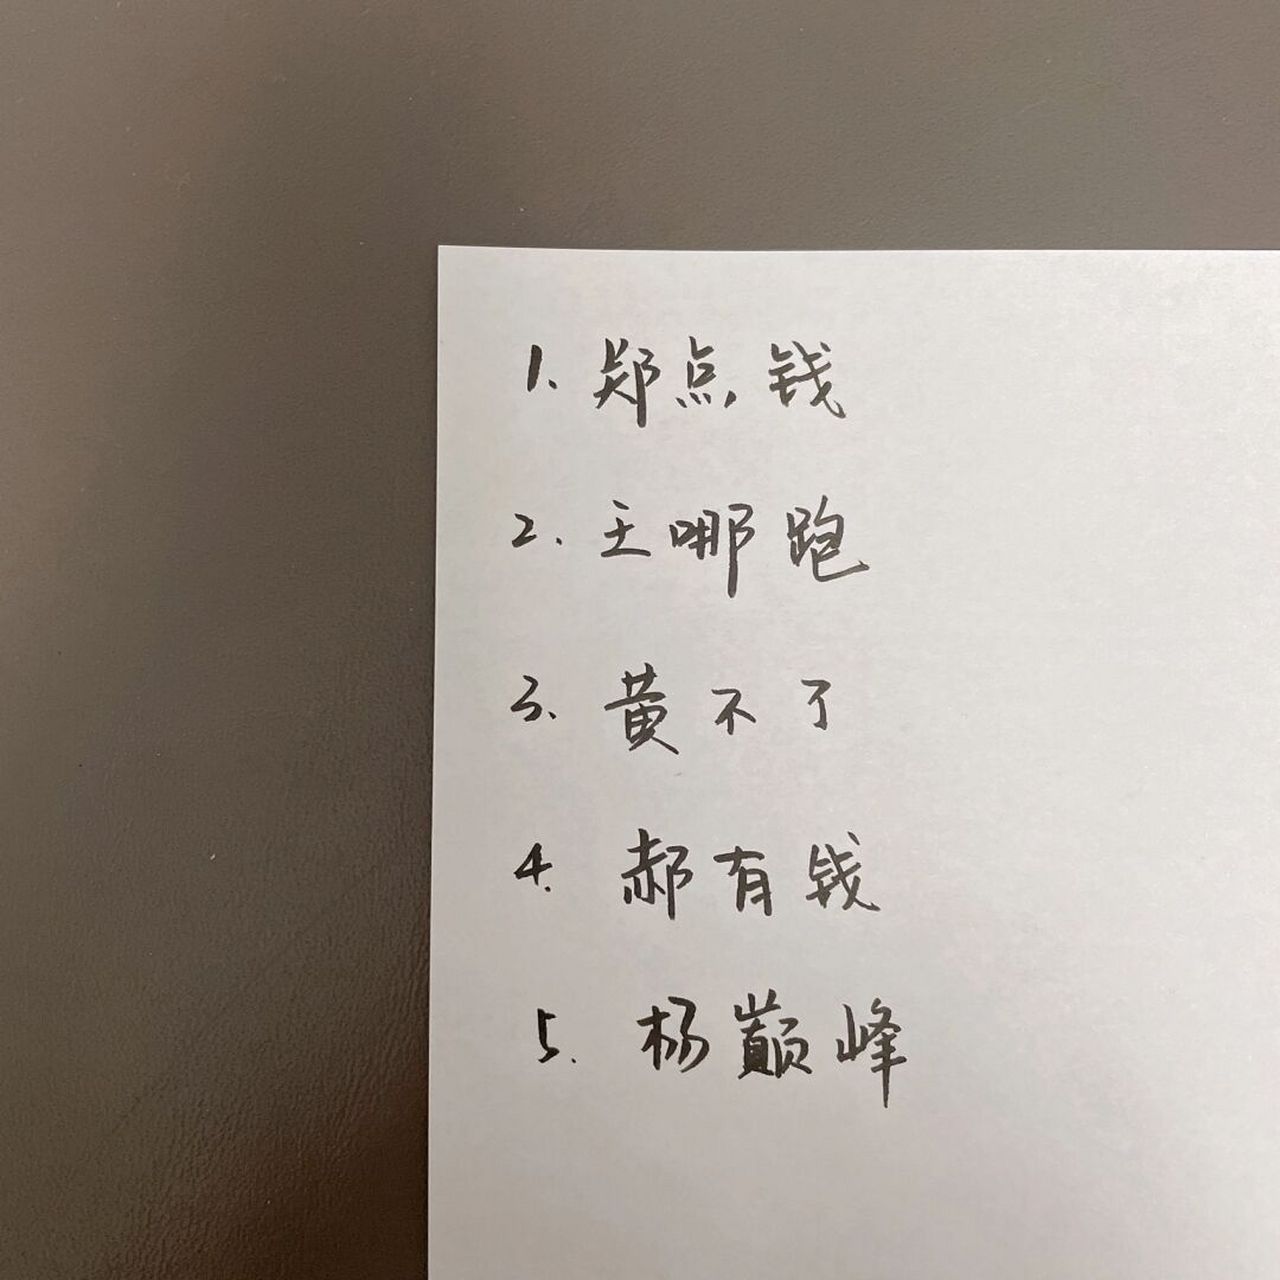 1. 郑点钱
2. 王哪跑
3. 黄不了
4. 郝有钱
5. 杨巅峰